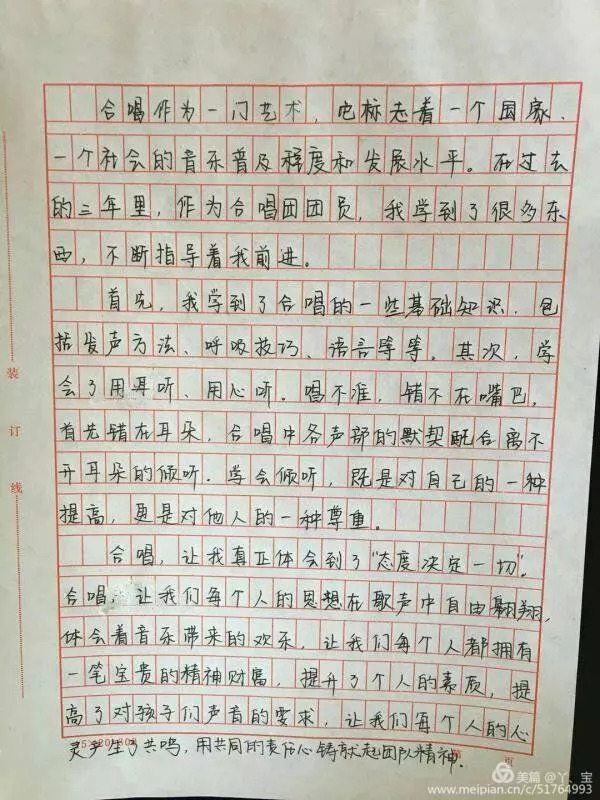 合唱作为一门艺术，它标志着一个国家、
一个社会的音乐普及程度和发展水平。在过去
的三年里，作为合唱团团员，我学到了很多东
西，不断指导着我前进。
首先，我学到了合唱的一些基础知识，包
括发声方法、呼吸技巧、语言等等。其次，学
会了用耳听、用心听。唱不准，错不在嘴巴，
首先错在耳朵，合唱中各声部的默契配合离不
开耳朵的倾听。学会倾听，既是对自己的一种
提高，更是对他人的一种尊重。
合唱，让我真正体会到了“态度决定一切”。
合唱，让我们每个人的思想在歌声中自由翱翔，
体会着音乐带来的欢乐，让我们每个人都拥有
一笔宝贵的精神财富，提升了个人的素质，提
高了对孩子们声音的要求，让我们每个人的心
灵产生了共鸣，用共同的责任心铸就起团队精神．
装
订
线
页
美篇 @丫、宝
www.meipian.cn/c/51764993